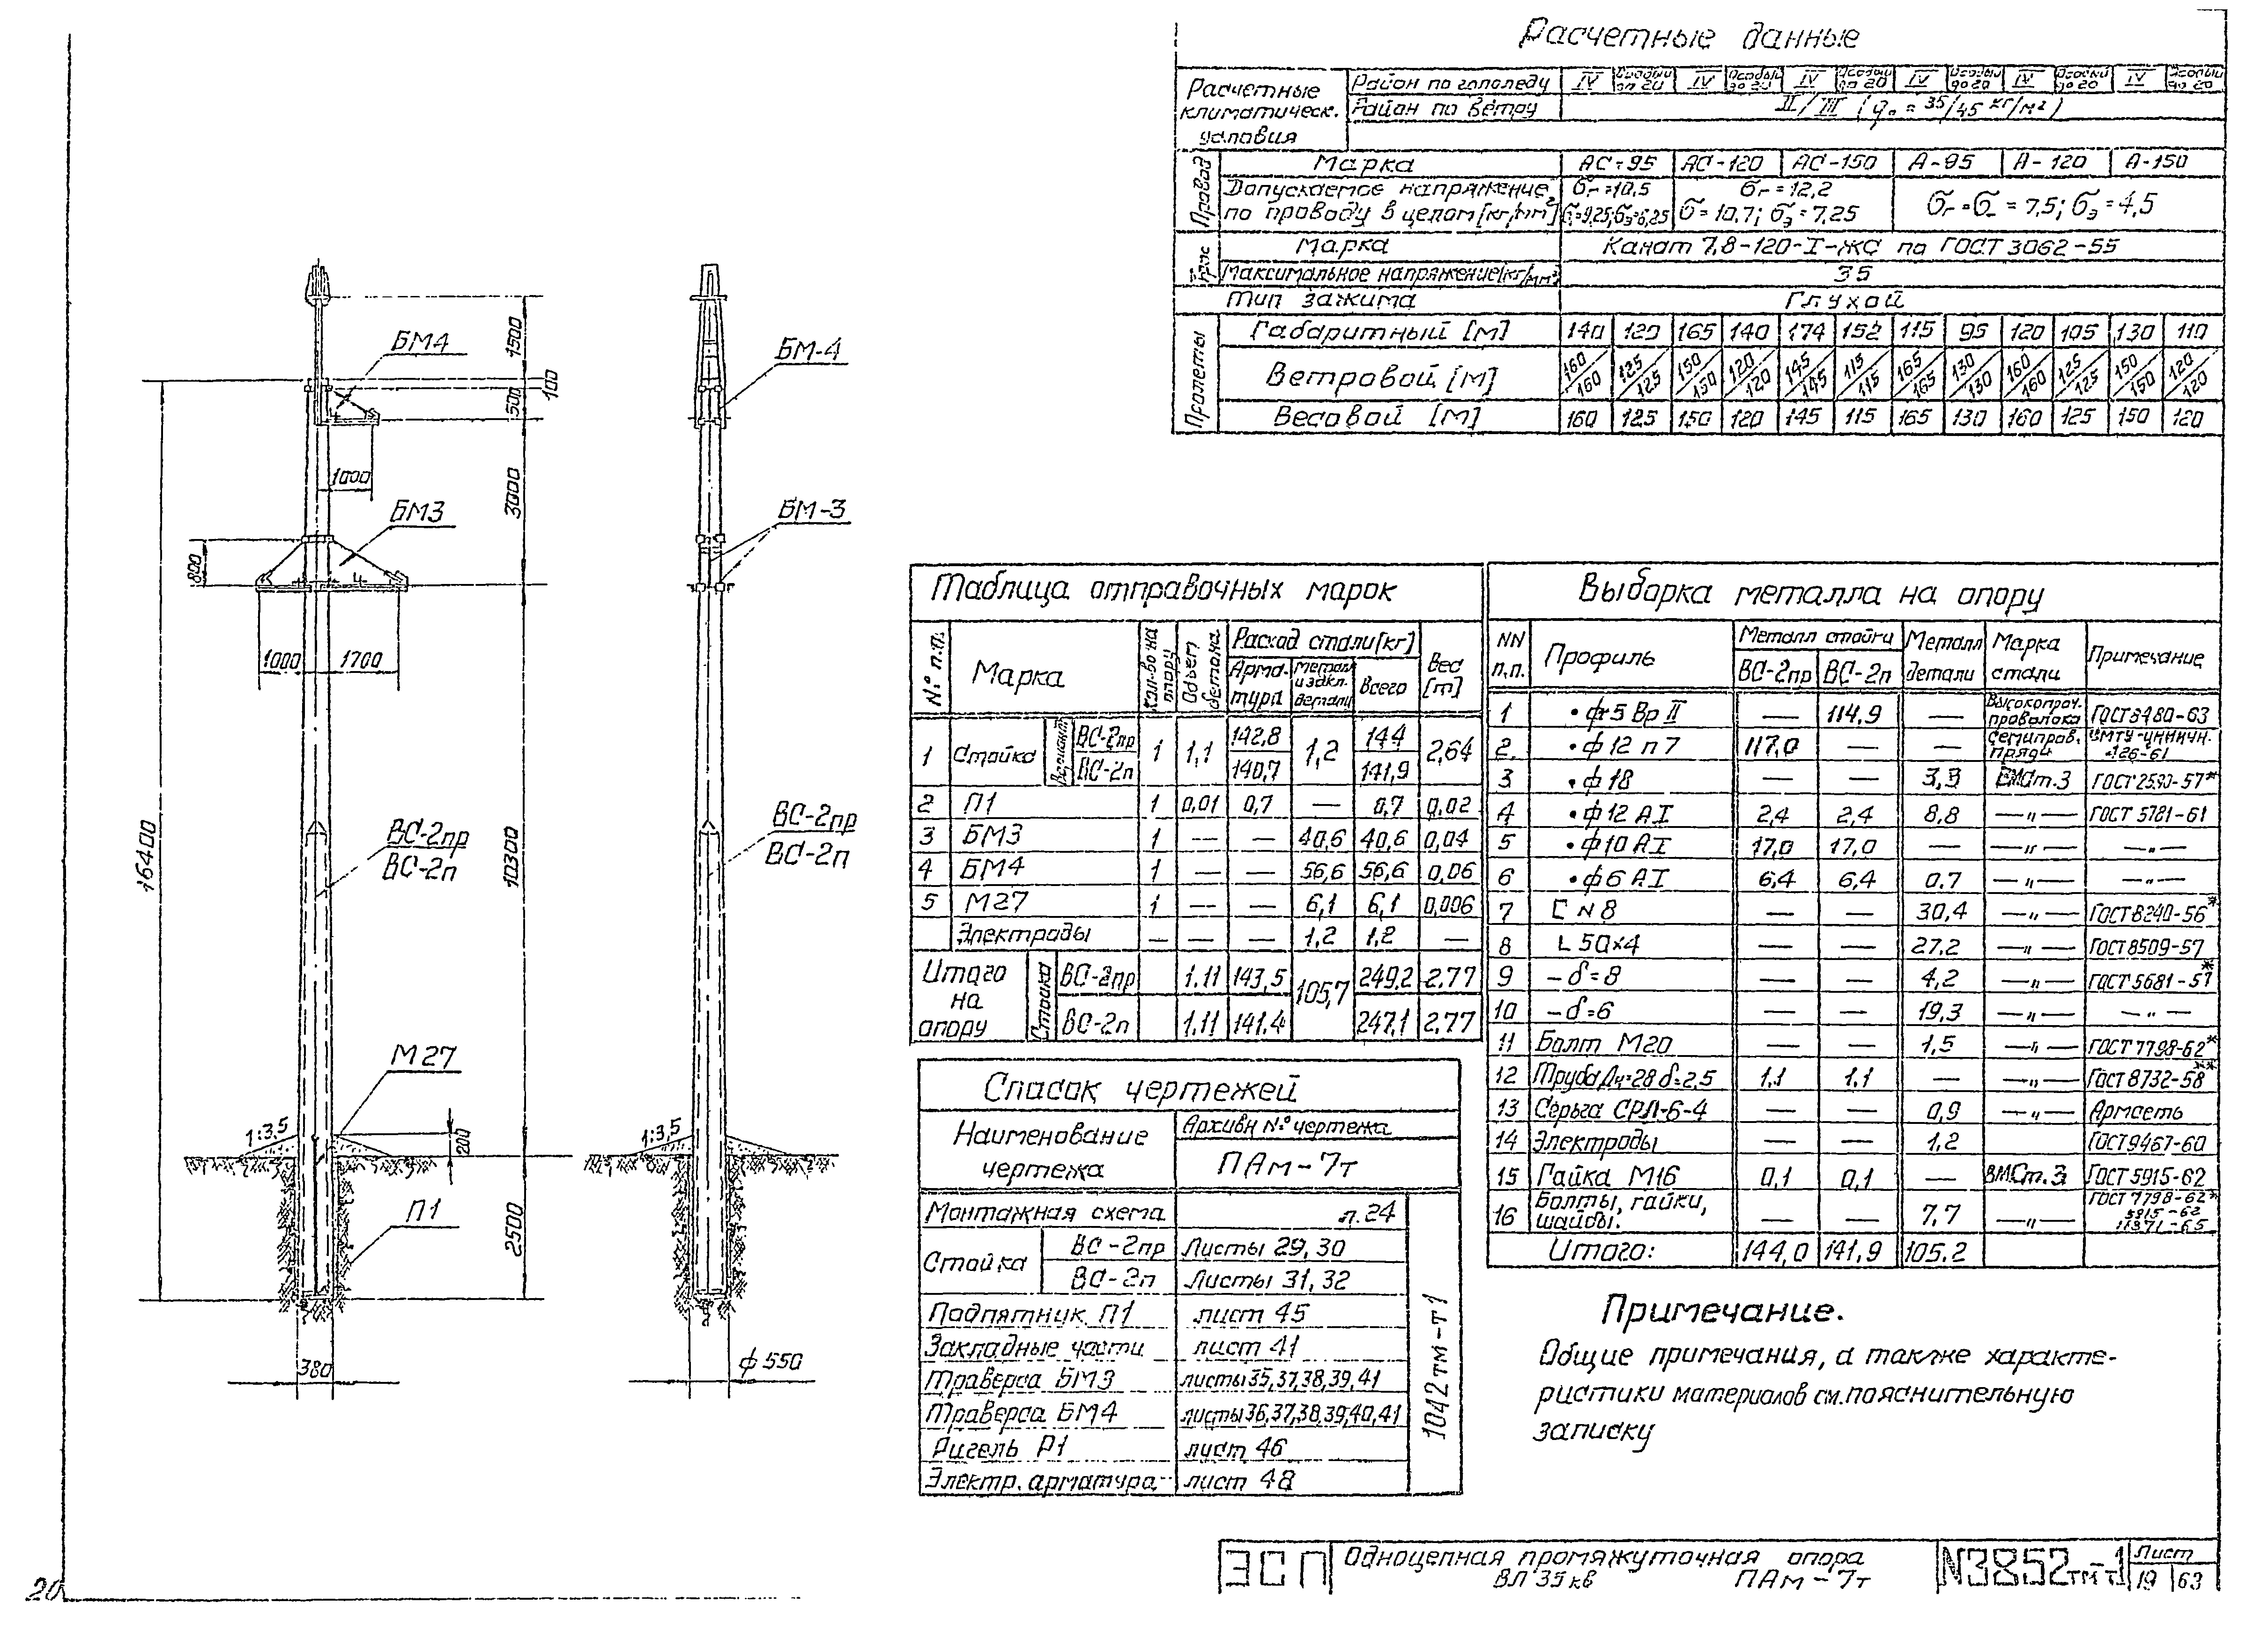 Расчетные данные
Расчетные климатическ. условия
Район по гололеду IV Особый до 20 IV Особый до 20 IV Особый до 20 IV Особый до 20 IV Особый до 20 IV Особый до 20
Район по ветру II/III (q₀ = 35/45 кг/м²)
Провод
Марка АС-95 АС-120 АС-150 А-95 А-120 А-150
Допускаемое напряжение, σг=10,5 σг=12,2
по проводу в целом [кг/мм²] σ-=9,25; σэ=6,25 σ=10,7; σэ=7,25 σг=σ-=7,5; σэ=4,5
Трос
Марка Канат 7,8-120-I-ЖС по ГОСТ 3062-55
Максимальное напряжение [кг/мм²] 35
Тип зажима Глухой
Пролеты
Габаритный [м] 140 120 165 140 174 152 115 95 120 105 130 110
Ветровой [м] 160/160 125/125 150/150 120/120 145/145 115/115 165/165 130/130 160/160 125/125 150/150 120/120
Весовой [м] 160 125 150 120 145 115 165 130 160 125 150 120
БМ4
БМ3
1500
100
500
3000
1000
800
1000 1700
16400
10300
ВС-2пр
ВС-2п
М27
1:3,5
200
П1
2500
380
БМ-4
БМ-3
ВС-2пр
ВС-2п
1:3,5
ф 550
Таблица отправочных марок
№ п.п. Марка Кол-во на опору Объем бетона Расход стали [кг] Вес [т]
Арматура Металл и закл. детали Всего
1 Стойка Вариант ВС-2пр 1 1,1 142,8 1,2 144 2,64
ВС-2п 140,7 141,9
2 П1 1 0,01 0,7 — 0,7 0,02
3 БМ3 1 — — 40,6 40,6 0,04
4 БМ4 1 — — 56,6 56,6 0,06
5 М27 1 — — 6,1 6,1 0,006
Электроды — — — 1,2 1,2 —
Итого на опору Стойка ВС-2пр 1.11 143,5 105,7 249,2 2,77
ВС-2п 1.11 141.4 247,1 2,77
Выборка металла на опору
NN п.п. Профиль Металл стойки Металл детали Марка стали Примечание
ВС-2пр ВС-2п
1 • ф5 Вр II — 114,9 — Высокопроч. проволока ГОСТ 8480-63
2. • ф12 п 7 117,0 — — Семипров. пряди ЧМТУ-ЦНИИЧМ-126-61
3 • ф18 — — 3,3 ВМСт.3 ГОСТ 2590-57*
4 • ф12 АI 2,4 2,4 8,8 —"— ГОСТ 5781-61
5 • ф10 АI 17,0 17,0 — —"— —"—
6 • ф6 АI 6,4 6,4 0,7 —"— —"—
7 [ N 8 — — 30,4 —"— ГОСТ 8240-56*
8 L 50х4 — — 27,2 —"— ГОСТ 8509-57
9 — δ=8 — — 4,2 —"— ГОСТ 5681-57*
10 — δ=6 — — 19,3 —"— —"—
11 Болт М20 — — 1,5 —"— ГОСТ 7798-62*
12 Труба Дч=28 δ=2,5 1,1 1,1 — —"— ГОСТ 8732-58**
13 Серьга СРЛ-6-4 — — 0,9 —"— Армсеть
14 Электроды — — 1,2 ГОСТ 9467-60
15 Гайка М16 0,1 0,1 — ВМСт.3 ГОСТ 5915-62
16 Болты, гайки, шайбы. — — 7,7 —"— ГОСТ 7798-62* 5915-62 11371-65
Итого: 144,0 141,9 105,2
Список чертежей
Наименование чертежа Архивн № чертежа
ПАм-7т
Монтажная схема л.24
Стойка ВС-2пр Листы 29,30
ВС-2п Листы 31,32
Подпятник П1 лист 45
Закладные части лист 41
Траверса БМ3 листы 35,37,38,39,41
Траверса БМ4 листы 36,37,38,39,40,41
Ригель Р1 лист 46
Электр. арматура лист 48
1042тм-т1
Примечание.
Общие примечания, а также характе-
ристики материалов см. пояснительную
записку
ЭСП Одноцепная промежуточная опора
ВЛ 35 кв ПАм-7т
N3852тм-т1
Лист
19 63
20